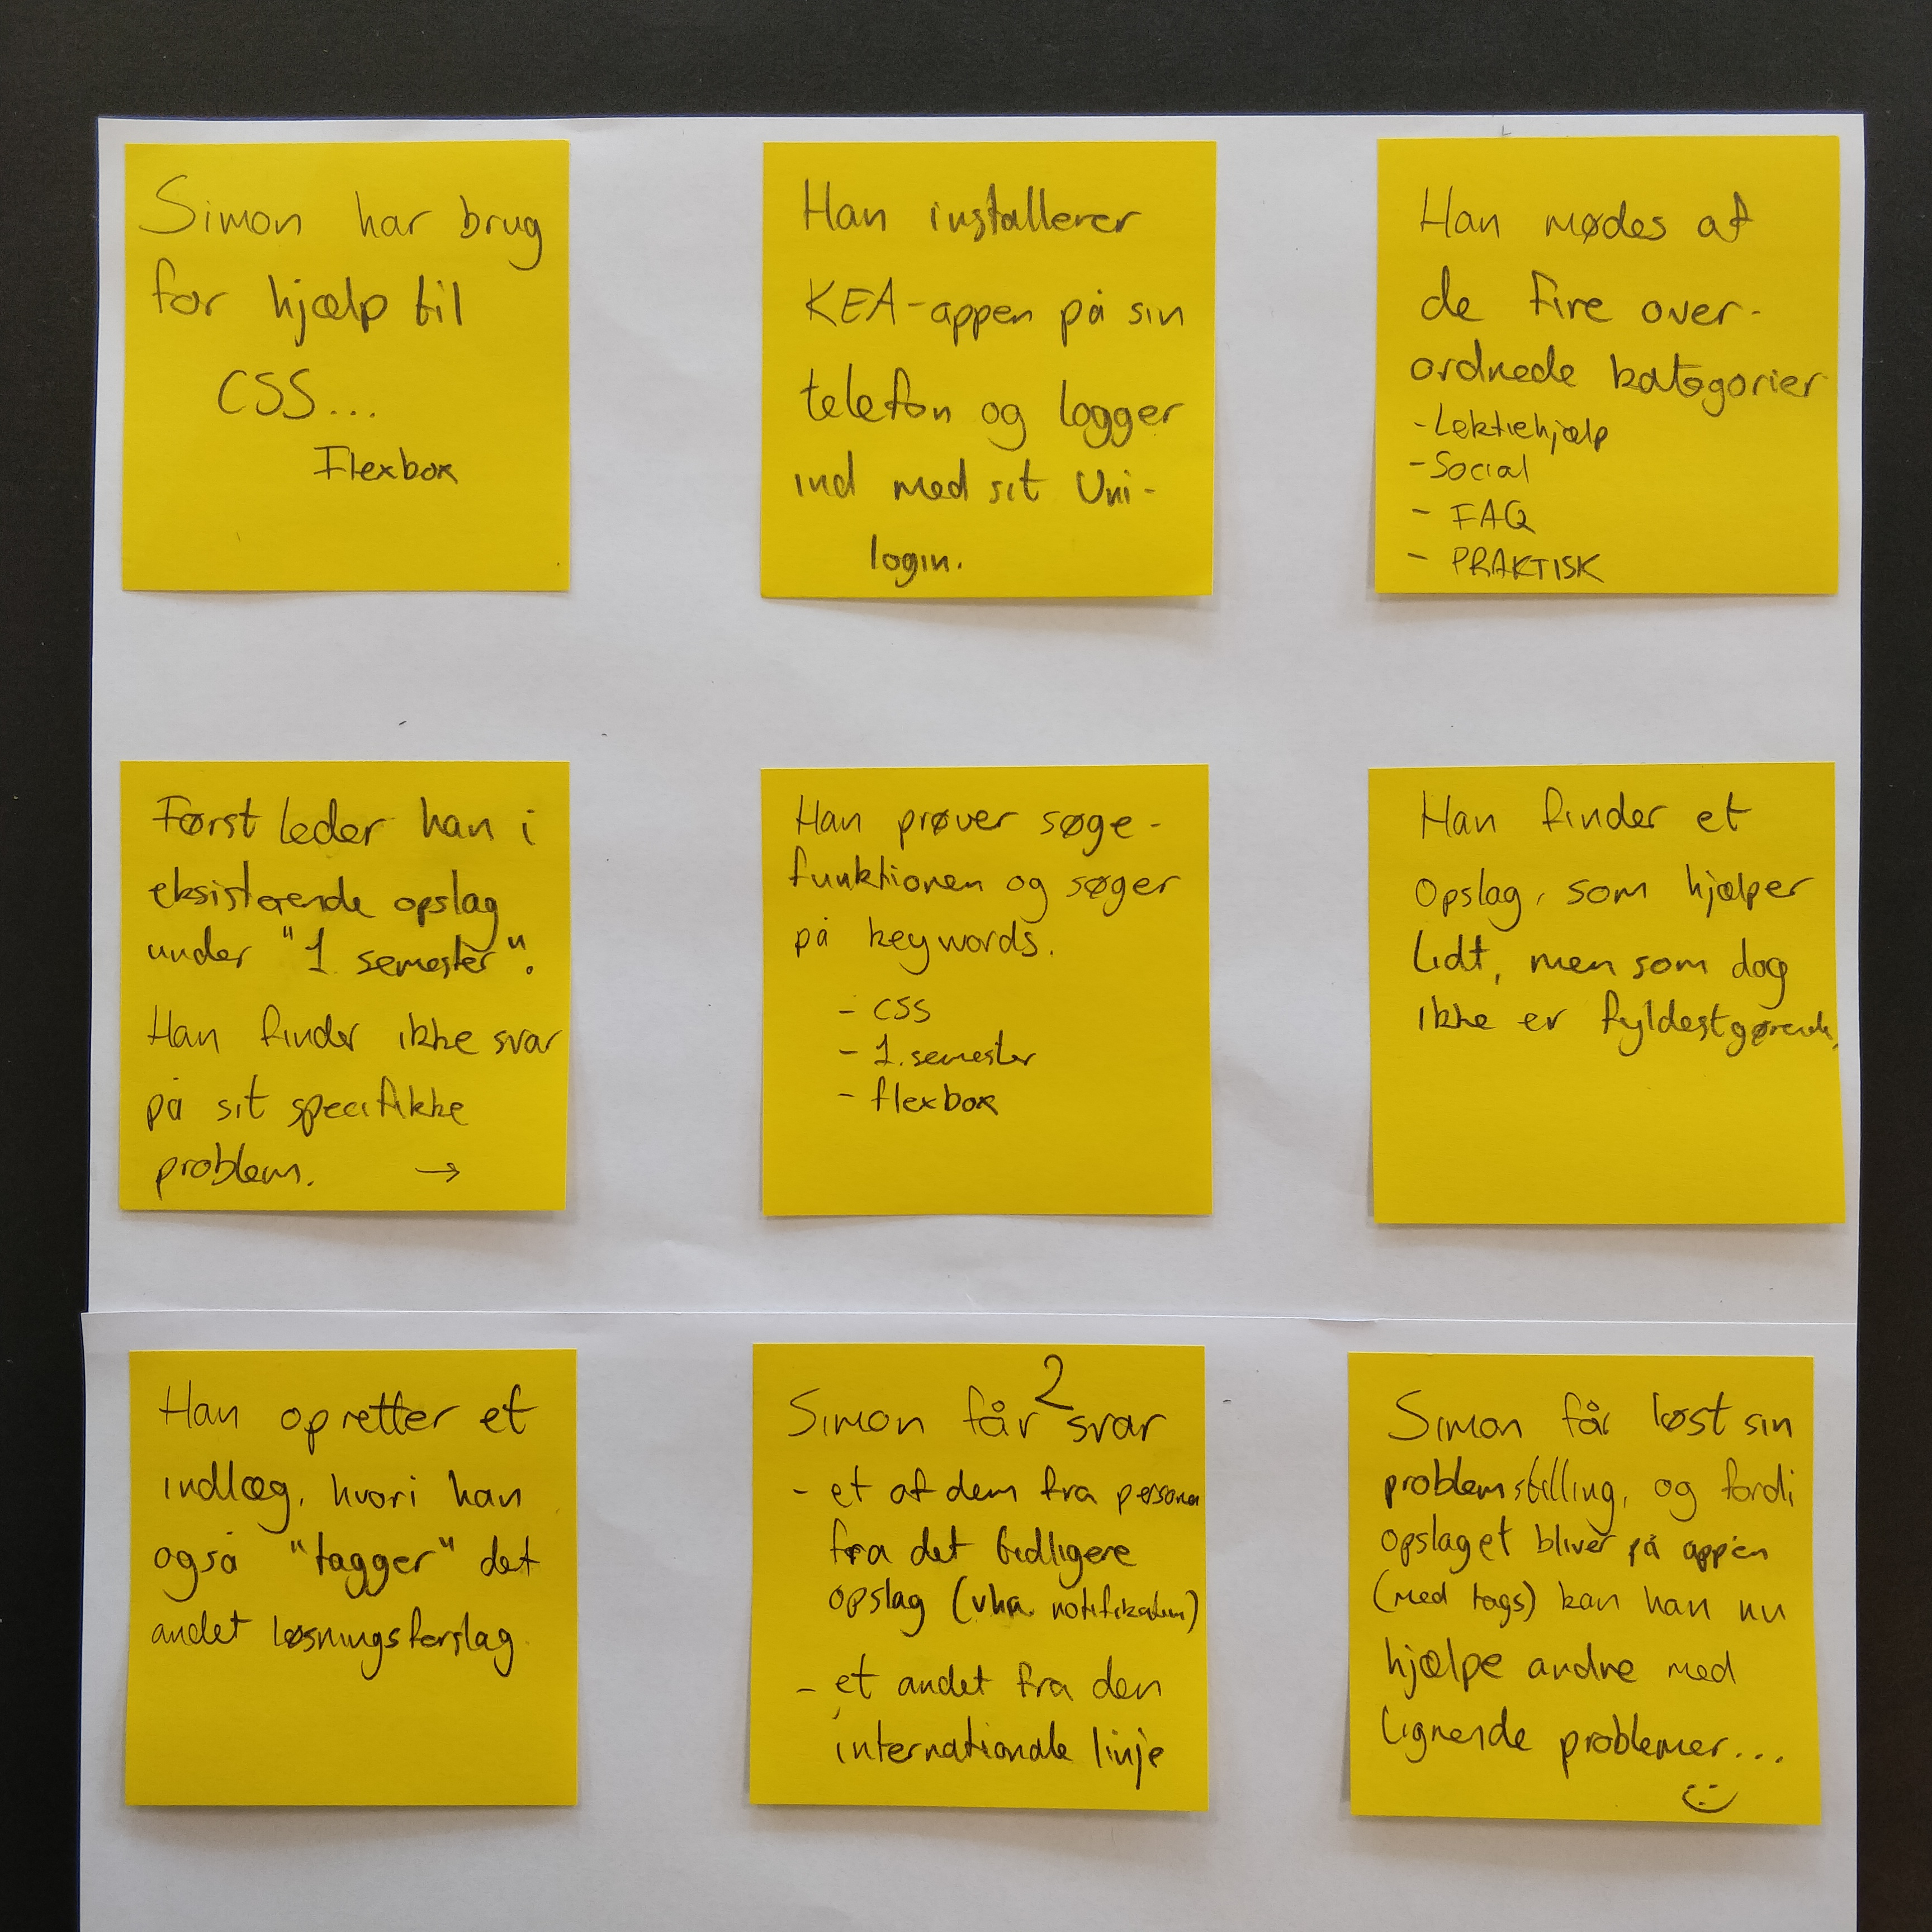 Simon har brug
for hjælp til
CSS...
Flexbox
Han installerer
KEA-appen på sin
telefon og logger
ind med sit Uni-
login.
Han mødes af
de fire over-
ordnede kategorier
- Lektiehjælp
- Social
- FAQ
- PRAKTISK
Først leder han i
eksisterende opslag
under "1 semester".
Han finder ikke svar
på sit specifikke
problem. →
Han prøver søge-
funktionen og søger
på keywords.
- CSS
- 1. semester
- flexbox
Han finder et
opslag, som hjælper
lidt, men som dog
ikke er fyldestgørende,
Han opretter et
indlæg, hvori han
også "tagger" det
andet løsningsforslag
2
Simon får svar
- et af dem fra
fra det tidligere
opslag (vha. notifikation)
- et andet fra den
internationale linje
Simon får løst sin
problemstilling, og fordi
opslaget bliver på appen
(med tags) kan han nu
hjælpe andre med
lignende problemer...